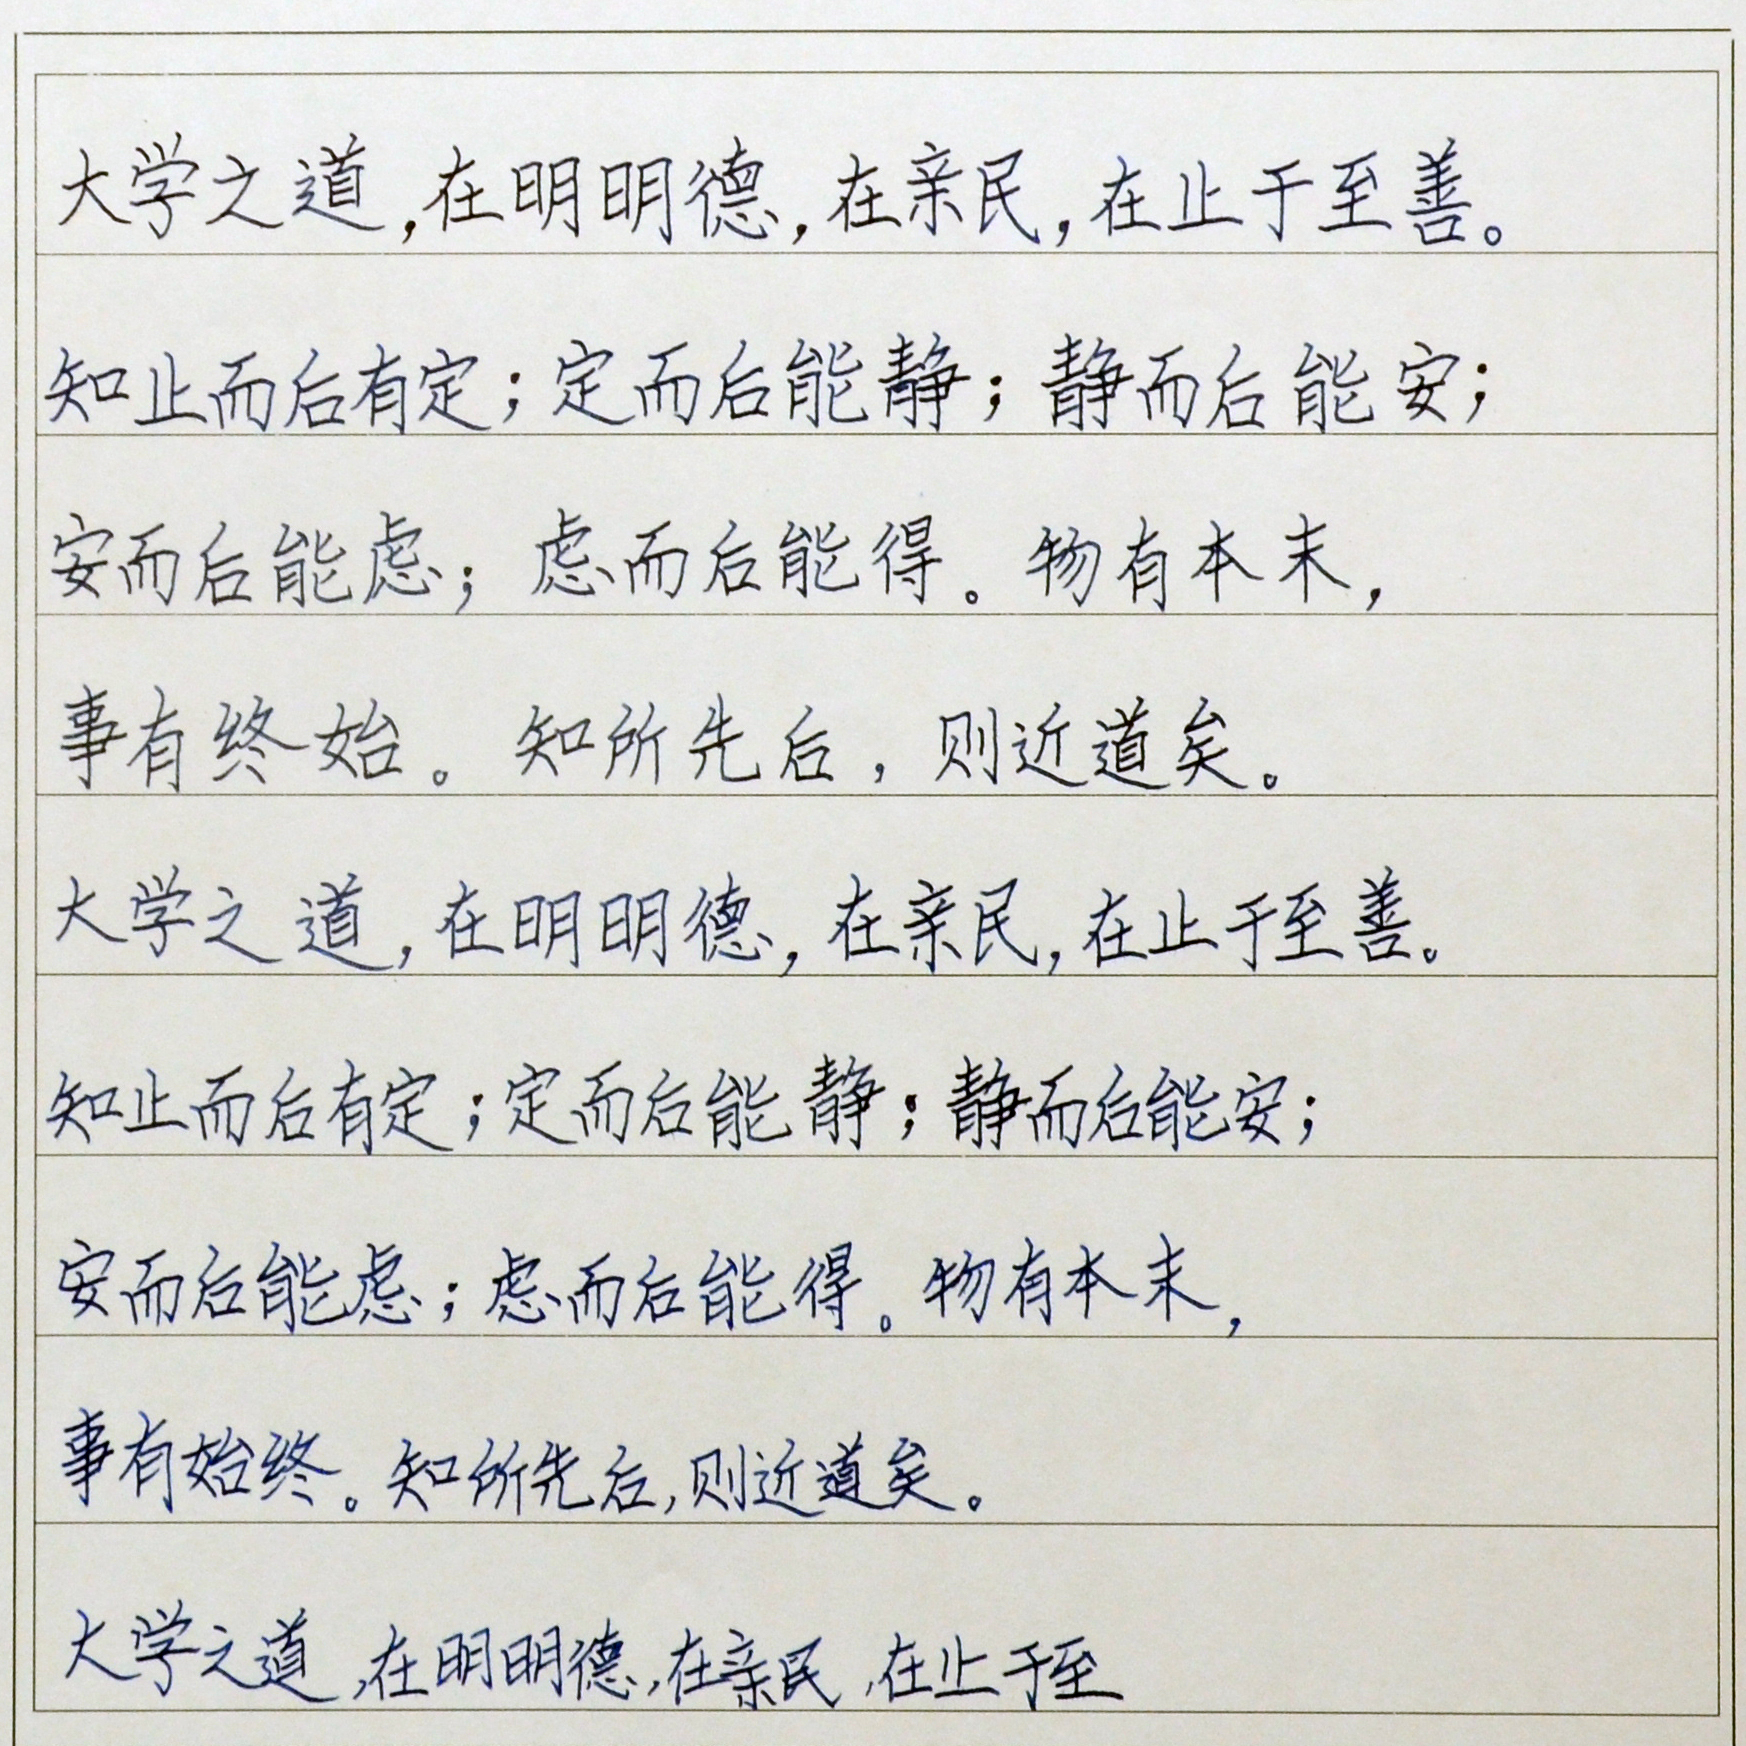 大学之道,在明明德,在亲民,在止于至善。
知止而后有定;定而后能静;静而后能安;
安而后能虑;虑而后能得。物有本末,
事有终始。知所先后,则近道矣。
大学之道,在明明德,在亲民,在止于至善。
知止而后有定;定而后能静;静而后能安;
安而后能虑;虑而后能得。物有本末,
事有始终。知所先后,则近道矣。
大学之道,在明明德,在亲民,在止于至